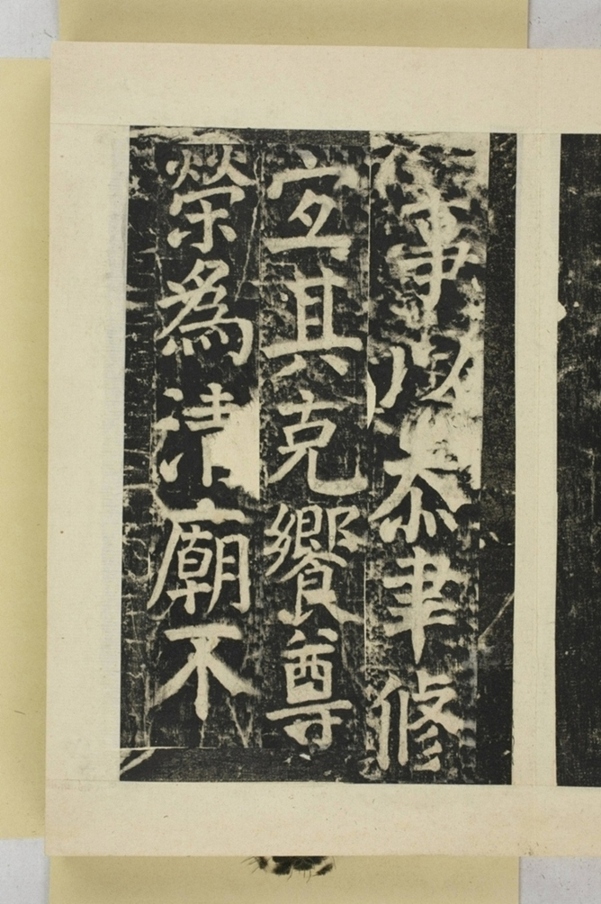 事以忝聿修
宜其克饗尊
榮為清廟不